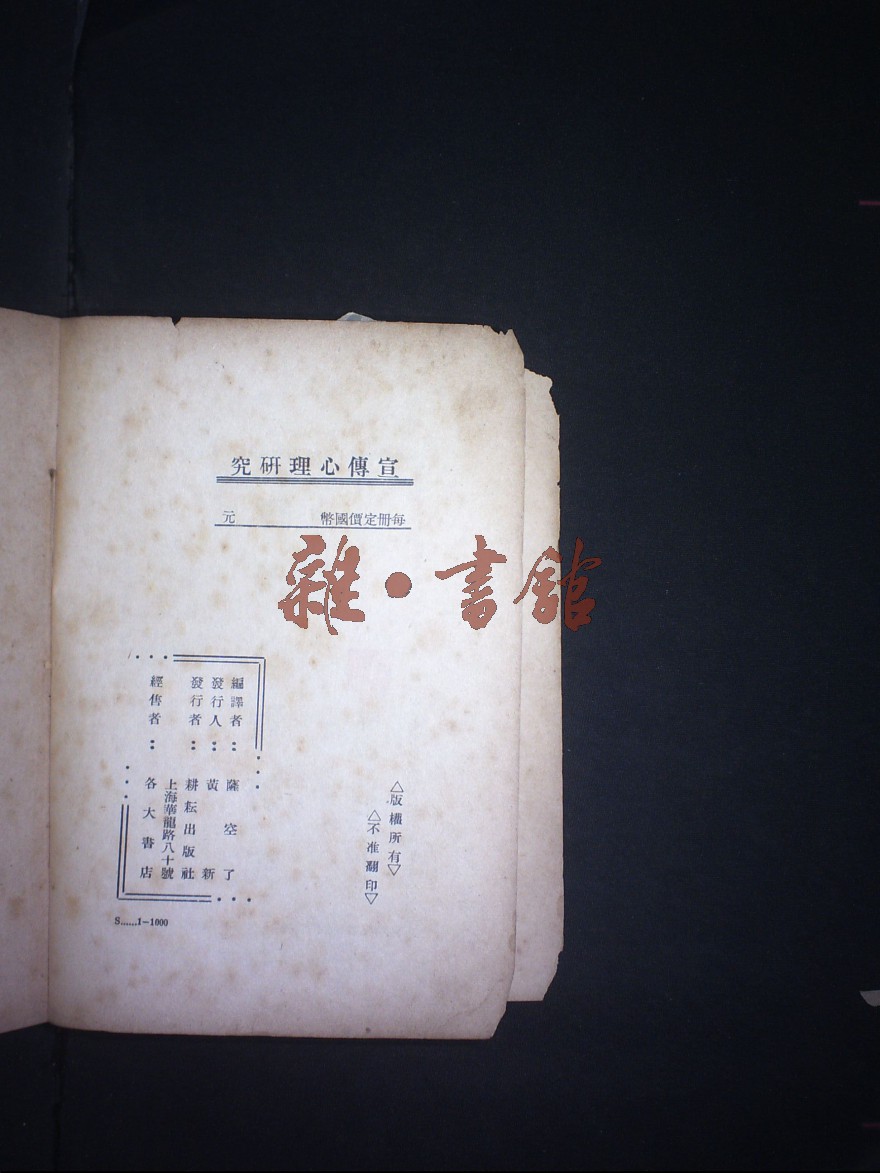 宣傳心理研究
每冊定價國幣 元
雜•書館
△版權所有▽
△不准翻印▽
編譯者：薩空了
發行人：黃新
發行者：耕耘出版社
上海華龍路八十號
經售者：各大書店
S......1—1000